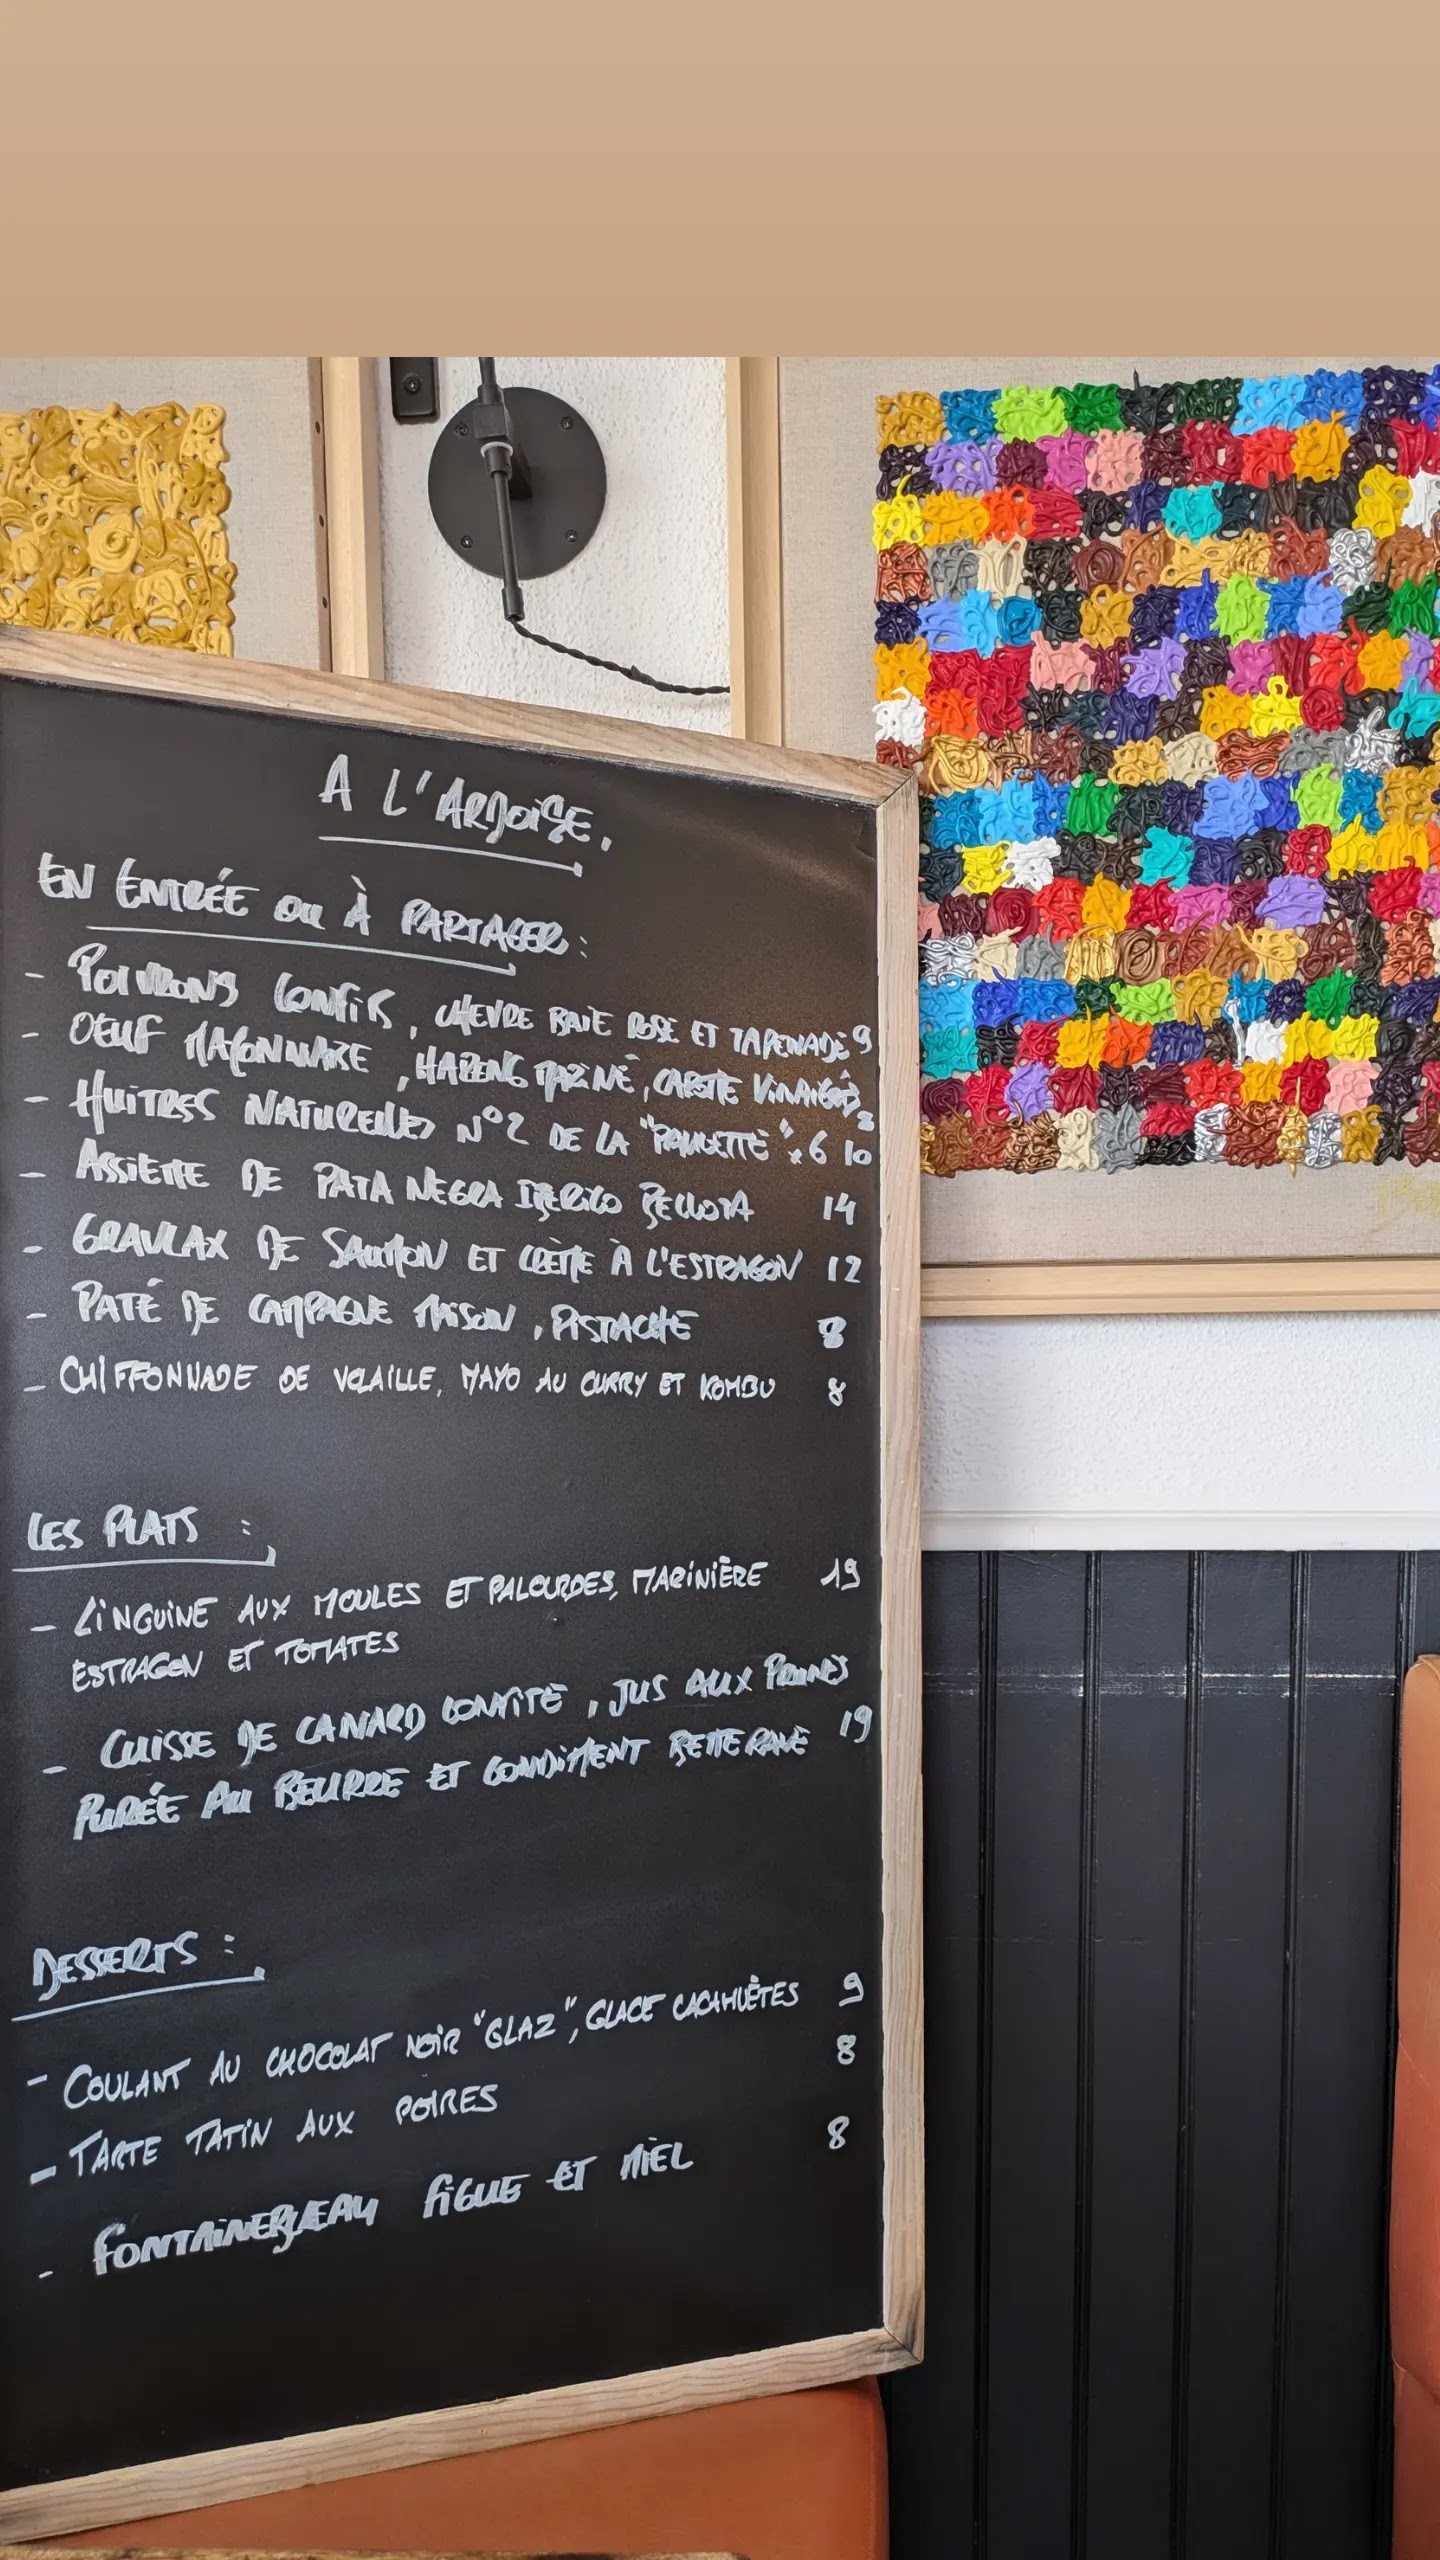 A L'ARDOISE.
EN ENTRÉE OU À PARTAGER :
- POIVRONS CONFIS, CHEVRE BAIE ROSE ET TAPENADE 9
- OEUF MAYONNAISE, HARENG MARINÉ,
8
- HUITRES NATURELLES N°2 DE LA "PAULETTE" x6 10
- ASSIETTE DE PATA NEGRA IBERICO BELLOTA 14
- GRAVLAX DE SAUMON ET CRÈME À L'ESTRAGON 12
- PATÉ DE CAMPAGNE MAISON, PISTACHE 8
- CHIFFONNADE DE VOLAILLE, MAYO AU CURRY ET KOMBU 8
LES PLATS :
- LINGUINE AUX MOULES ET PALOURDES, MARINIÈRE 19
ESTRAGON ET TOMATES
- CUISSE DE CANARD CONFITE, JUS AUX PRUNES
PURÉE AU BEURRE ET CONDIMENT BETTERAVE 19
DESSERTS :
- COULANT AU CHOCOLAT NOIR "GLAZ", GLACE CACAHUÈTES 9
- TARTE TATIN AUX POIRES 8
- FONTAINEBLEAU FIGUE ET MIEL 8